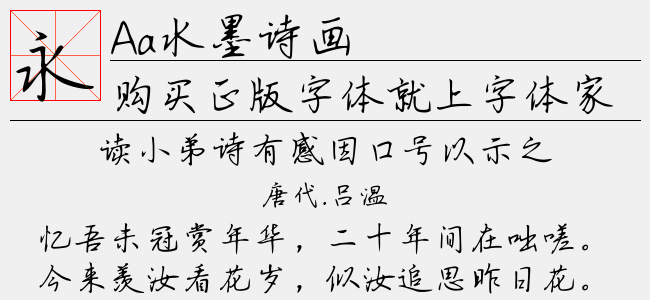 永
Aa水墨诗画
购买正版字体就上字体家
读小弟诗有感因口号以示之
唐代.吕温
忆吾未冠赏年华，二十年间在咄嗟。
今来羡汝看花岁，似汝追思昨日花。